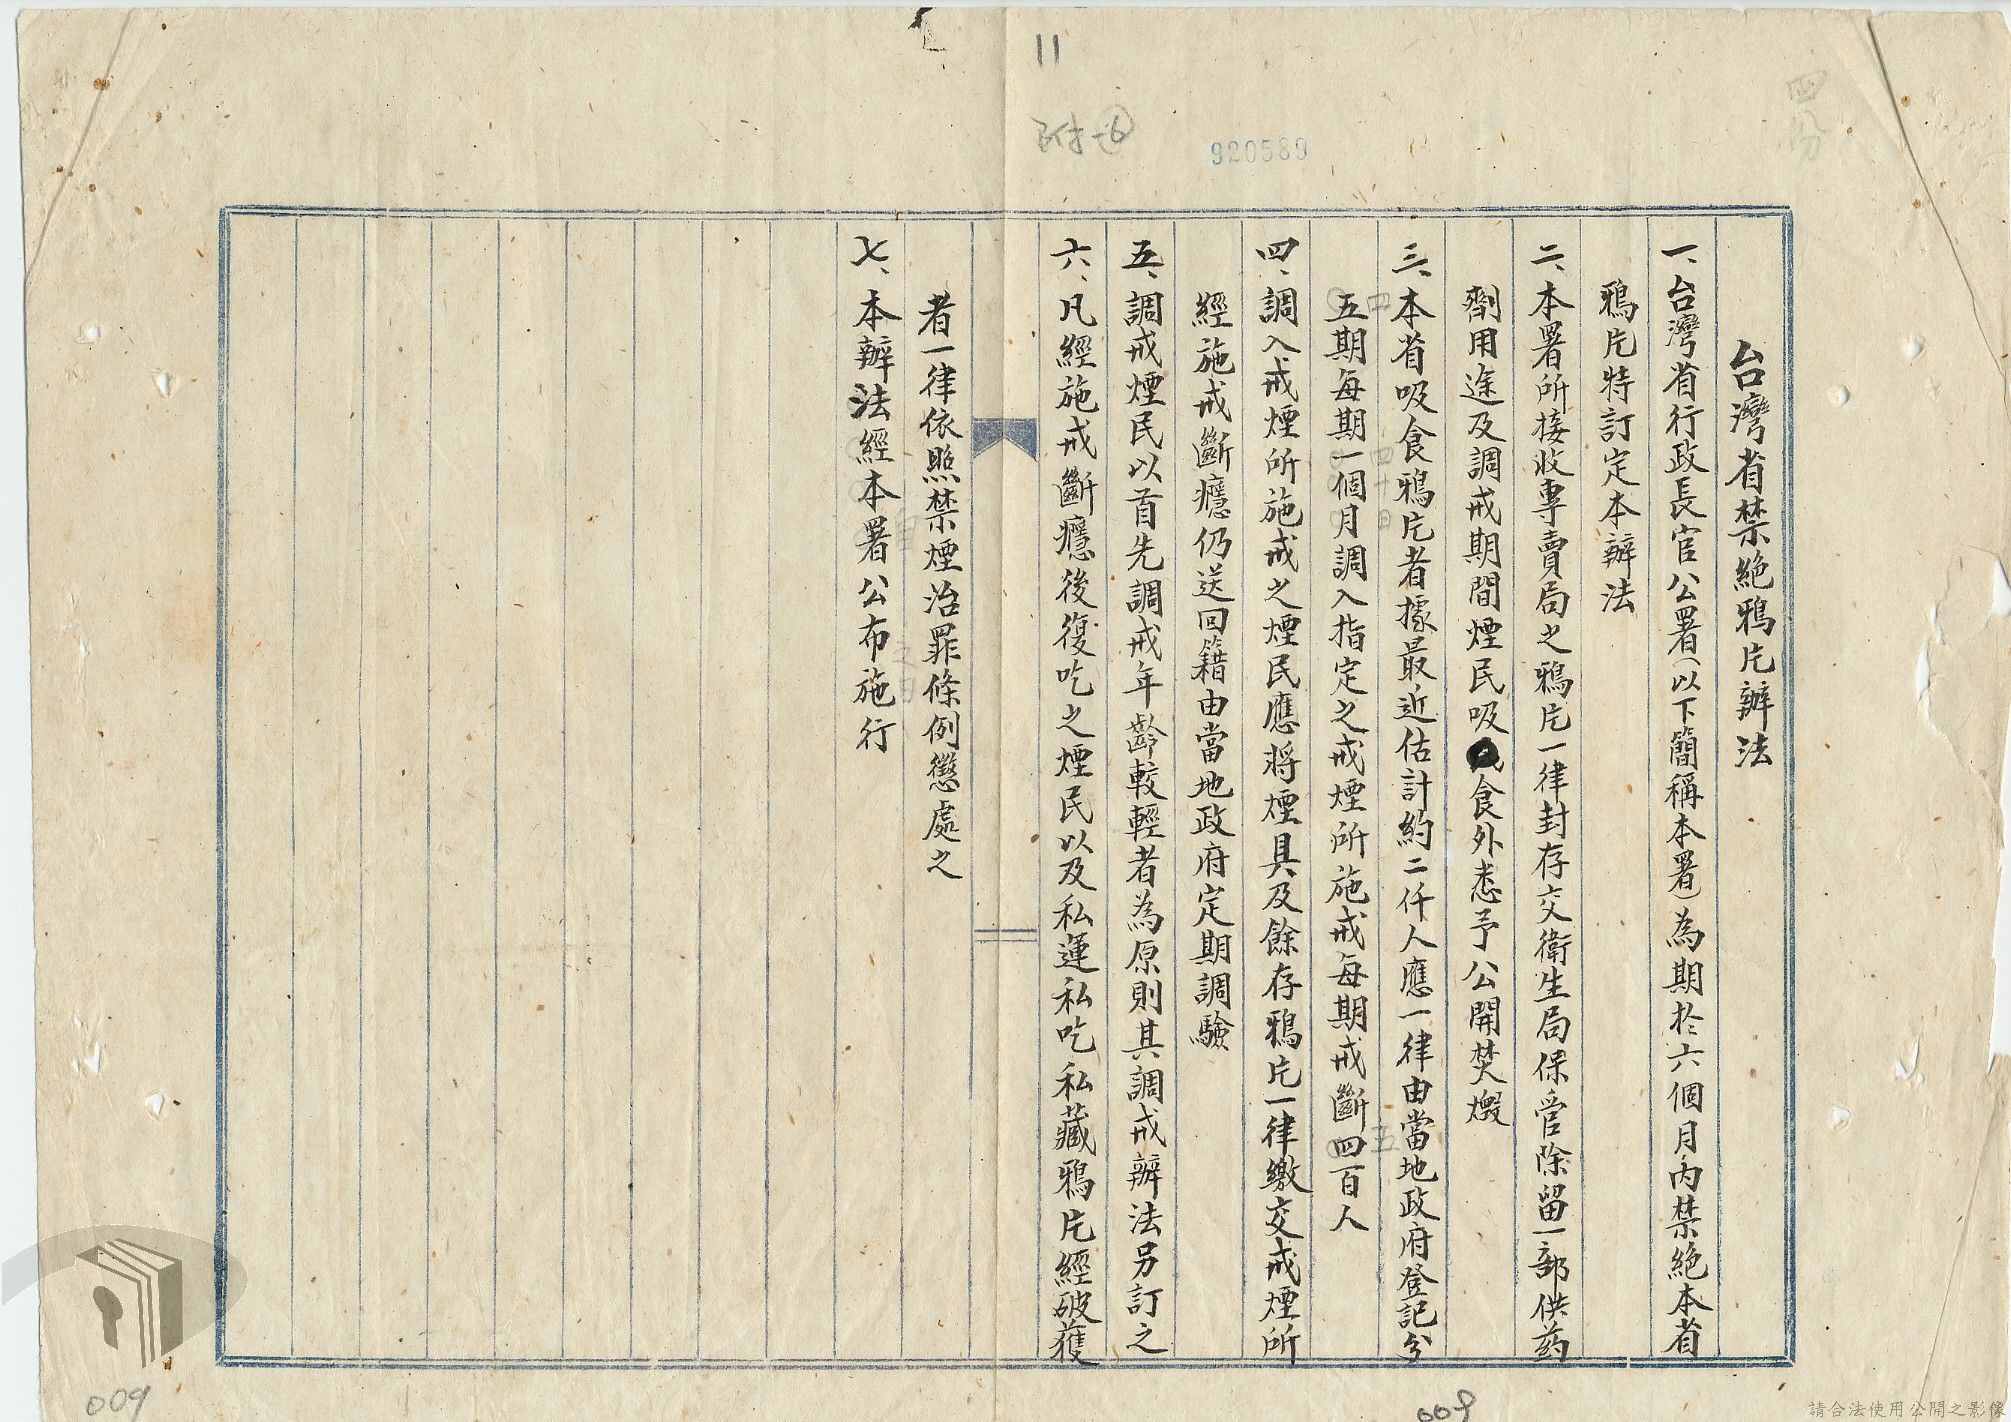 11
920589
四份
台灣省禁絕鴉片辦法
一、台灣省行政長官公署(以下簡稱本署)為期於六個月內禁絕本省
鴉片特訂定本辦法
二、本署所接收專賣局之鴉片一律封存交衛生局保管除留一部供葯
劑用途及調戒期間煙民吸食外悉予公開焚燬
三、本省吸食鴉片者據最近估計約二仟人應一律由當地政府登記分
五期每期一個月調入指定之戒煙所施戒每期戒斷四百人
四十日
五
四、調入戒煙所施戒之煙民應將煙具及餘存鴉片一律繳交戒煙所
經施戒斷癮仍送回籍由當地政府定期調驗
五、調戒煙民以首先調戒年齡較輕者為原則其調戒辦法另訂之
六、凡經施戒斷癮後復吃之煙民以及私運私吃私藏鴉片經破獲
者一律依照禁煙治罪條例懲處之
七、本辦法經本署公布施行
自
之日
009
009
請合法使用公開之影像